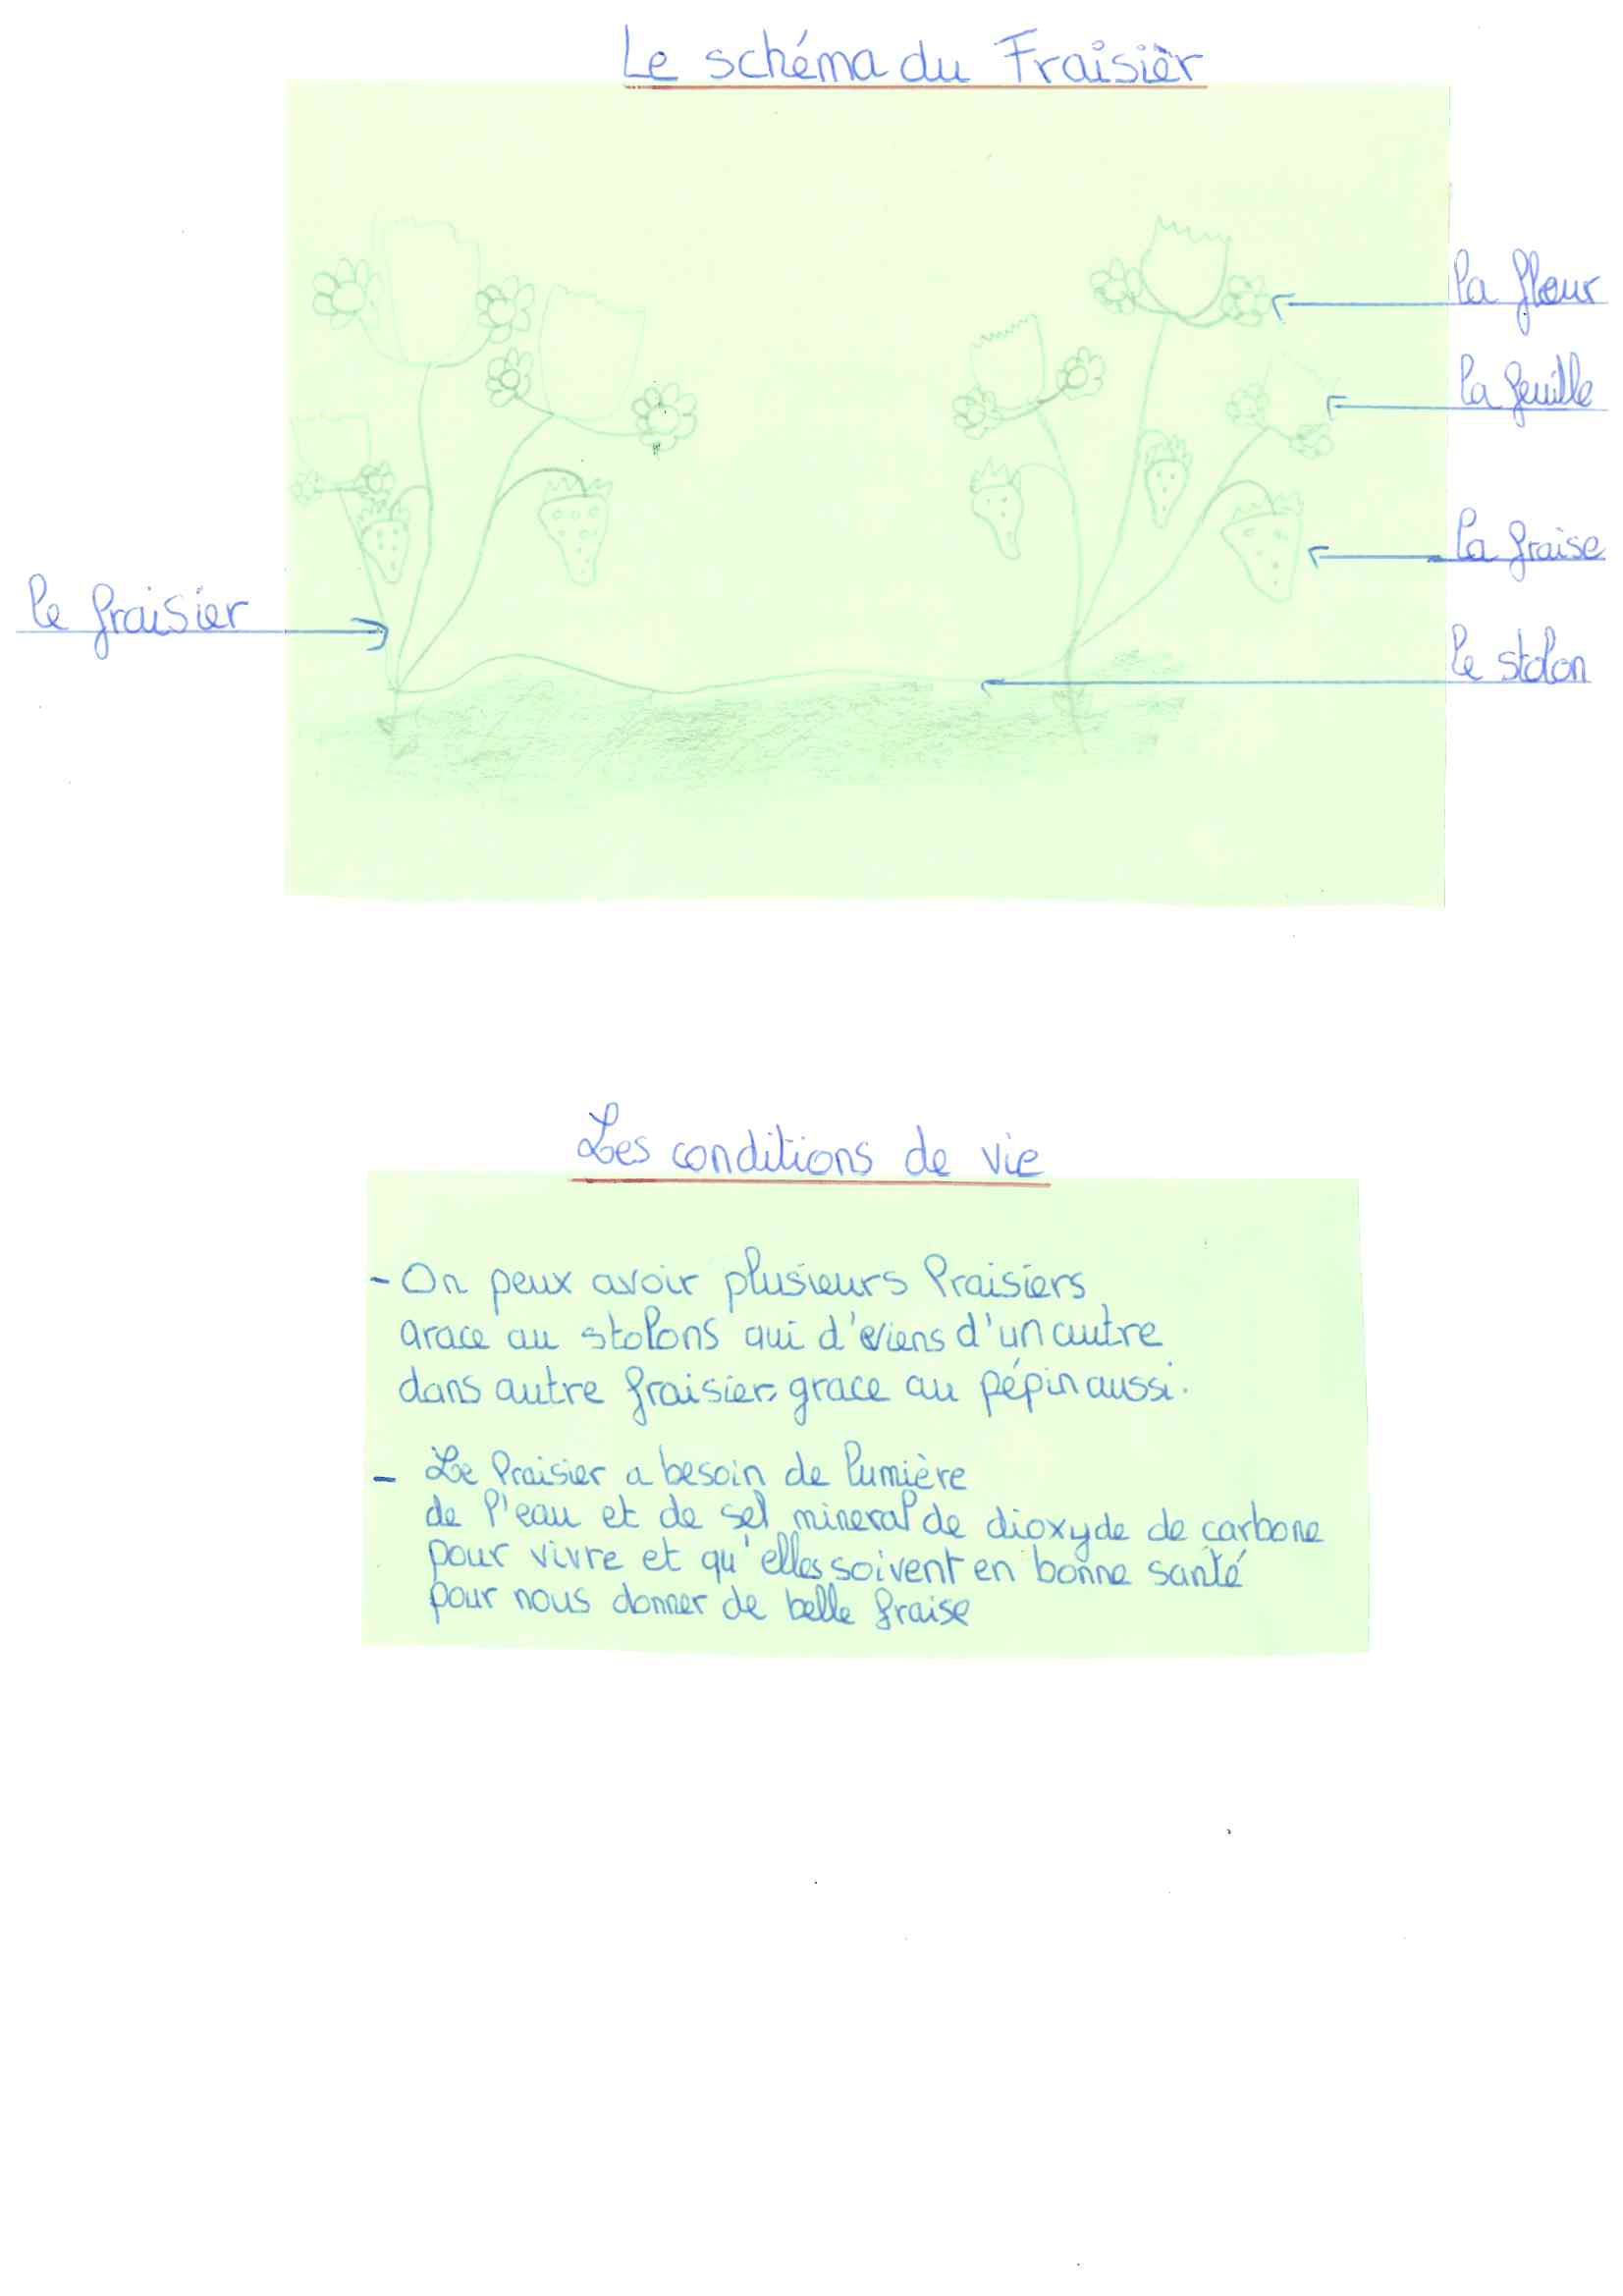 Le schéma du Fraisièr
la fleur
la feuille
la fraise
le fraisier
le stolon
Les conditions de vie
- On peux avoir plusieurs fraisiers
grace au stolons qui d'eviens d'un autre
dans autre fraisier, grace au pépin aussi.
- Le fraisier a besoin de lumière
de l'eau et de sel mineral de dioxyde de carbone
pour vivre et qu'elles soivent en bonne santé
pour nous donner de belle fraise